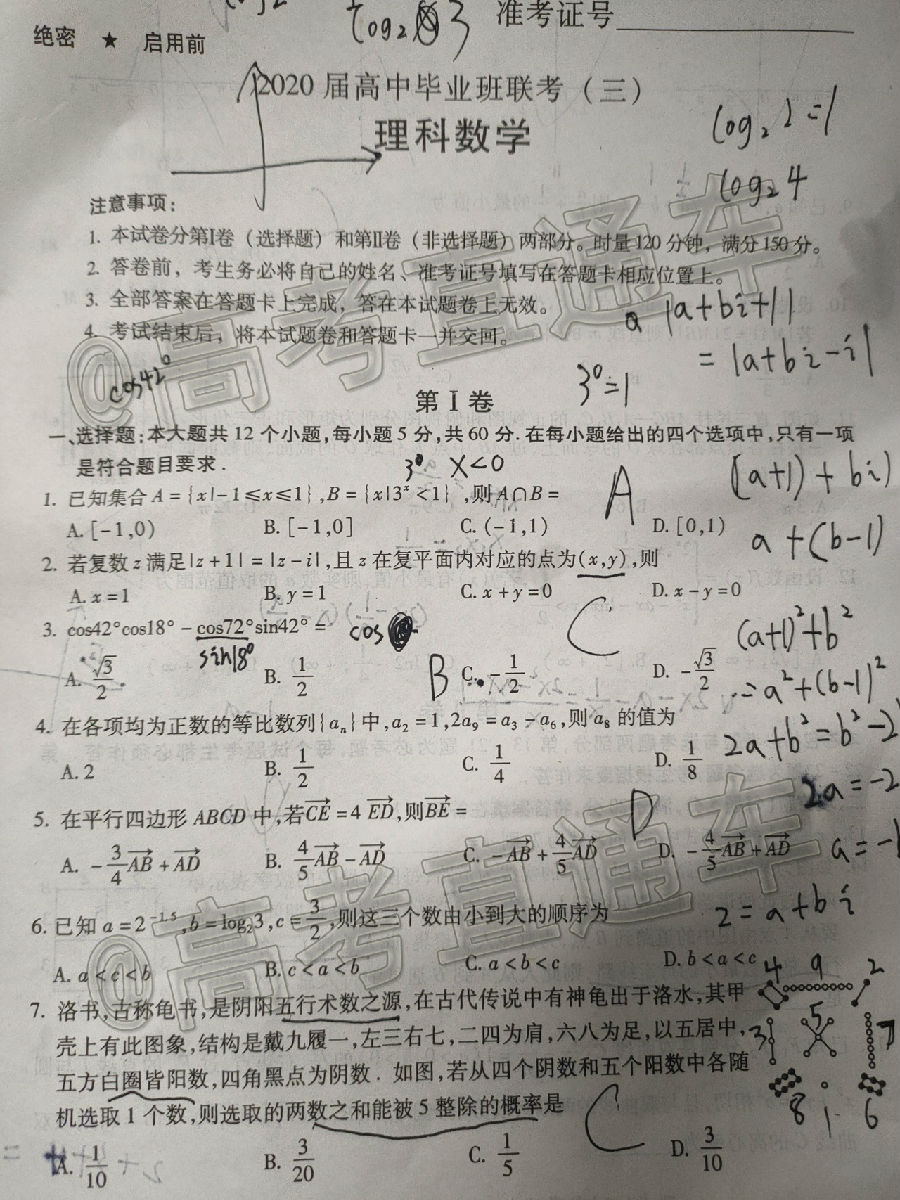 log₂3
准考证号
绝密 ★ 启用前
2020 届高中毕业班联考（三）
理科数学
log₂2=1
log₂4
注意事项：
1. 本试卷分第Ⅰ卷（选择题）和第Ⅱ卷（非选择题）两部分。时量120分钟，满分150分。
2. 答卷前，考生务必将自己的姓名、准考证号填写在答题卡相应位置上。
3. 全部答案在答题卡上完成，答在本试题卷上无效。
4. 考试结束后，将本试题卷和答题卡一并交回。
@高考直通车
cos42°
a |a+bi+1|
= |a+bi-i|
3⁰=1
第Ⅰ卷
一、选择题：本大题共 12 个小题，每小题 5 分，共 60 分．在每小题给出的四个选项中，只有一项
是符合题目要求．
3⁰ x<0
1. 已知集合 A={x|-1≤x≤1}，B={x|3ˣ<1}，则 A∩B= A
A. [-1,0) B. [-1,0] C. (-1,1) D. [0,1)
((a+1)+bi)
a+(b-1)
2. 若复数 z 满足|z+1|=|z-i|，且 z 在复平面内对应的点为(x,y)，则
A. x=1 B. y=1 C. x+y=0 D. x-y=0
C
3. cos42°cos18°-cos72°sin42°= cos
sin18°
A. √3/2 B. 1/2 C. -1/2 D. -√3/2
B
(a+1)²+b²
=a²+(b-1)²
4. 在各项均为正数的等比数列{aₙ}中，a₂=1,2a₉=a₃-a₆，则 a₈ 的值为
A. 2 B. 1/2 C. 1/4 D. 1/8
2a+b²=b²-2
2a=-2
5. 在平行四边形 ABCD 中，若CE=4 ED，则BE= D
A. -3/4AB+AD B. 4/5AB-AD C. -AB+4/5AD D. -4/5AB+AD
a=-1
z=a+bi
6. 已知 a=2⁻¹·⁵，b=log₂3，c=3/2，则这三个数由小到大的顺序为
A. a<c<b B. c<a<b C. a<b<c D. b<a<c
@高考直通车
7. 洛书，古称龟书，是阴阳五行术数之源，在古代传说中有神龟出于洛水，其甲
壳上有此图象，结构是戴九履一，左三右七，二四为肩，六八为足，以五居中，
五方白圈皆阳数，四角黑点为阴数．如图，若从四个阴数和五个阳数中各随
机选取 1 个数，则选取的两数之和能被 5 整除的概率是 C
4 9 2
3 5 7
8 1 6
A. 1/10 B. 3/20 C. 1/5 D. 3/10